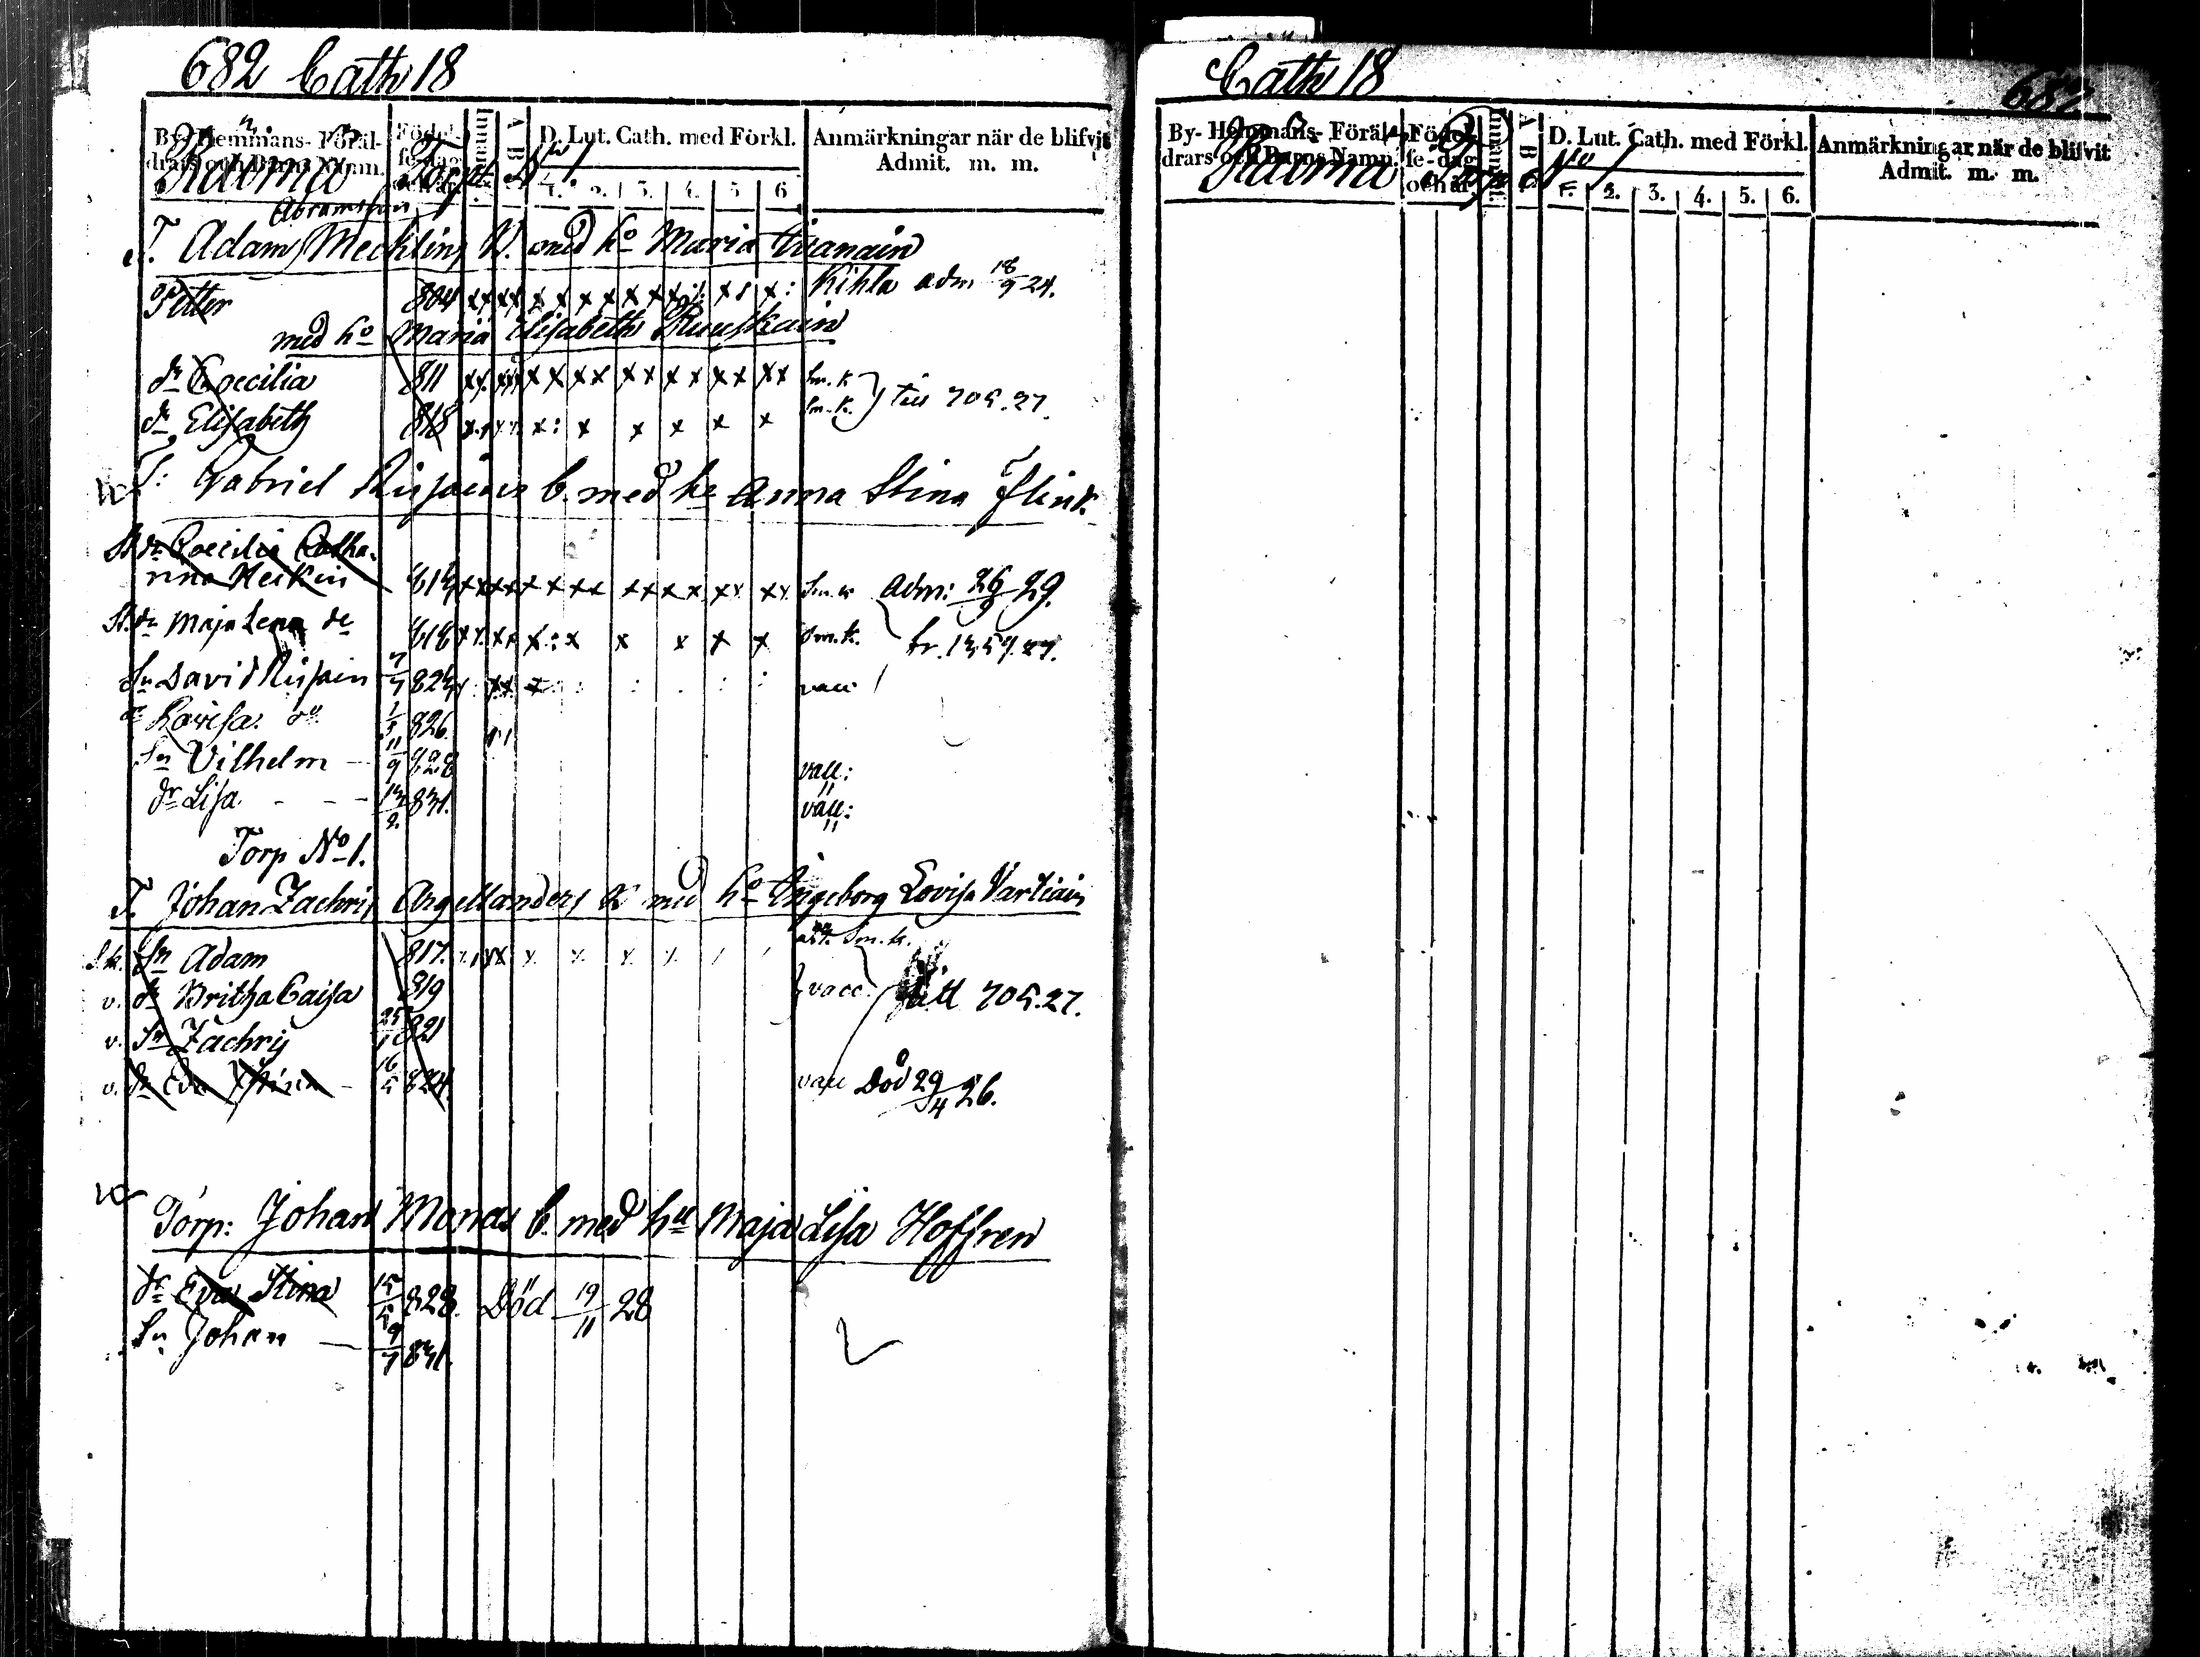 682 Cath 18
By- Hemmans- Föräl-
drars och Barns Namn.
Födel-
se-dag
och år.
Innantil.
A B C
D. Lut. Cath. med Förkl.
1. 2. 3. 4. 5 6
Anmärkningar när de blifvit
Admit. m. m.
Rauma Torp No 1
Abramsson
T. Adam Mecklin V. med ho Maria
Petter 804 Kihla adm 18/9 24.
med ho Maria Elisabeth Ruuskain
dr Coecilia 811 Sm. k
dr Elisabeth 818 Sm. k. till 705.27.
T: Gabriel b. med ho Anna Stina Flink
St. dr Coecilia Catha-
rina Heikin 813 Adm: 26/9 29.
St. dr Maja Lena do 818 Sm. k. fr. 1359.27.
Sn David 7/7 823 vacc
dr Lovisa do 1/5 826.
Sn Vilhelm 11/9 828 vacc:
dr Lisa 13/2. 831. vacc:
Torp No 1.
T. Johan Zachris Argellander K med ho Ingeborg Lovisa Vartiain
S.k. Sn Adam 817. Sm. k.
v. dr Britha Caisa 819 vacc. till 705.27.
v. Sn Zachris 25/1 821
v. dr Eva Stina 16/5 824. vacc Död 29/4 26.
Torp: Johan Monas b. med hu Maja Lisa Hoffren
dr Eva Stina 15/5 828. Död 19/11 28
Sn Johan 9/7 831.
Cath 18 682
By- Hemmans- Föräl-
drars och Barns Namn.
Födel-
se-dag
och år.
Innantil.
A B C
D. Lut. Cath. med Förkl.
1. 2. 3. 4. 5. 6.
Anmärkningar när de blifvit
Admit. m. m.
Rauma Torp No 1